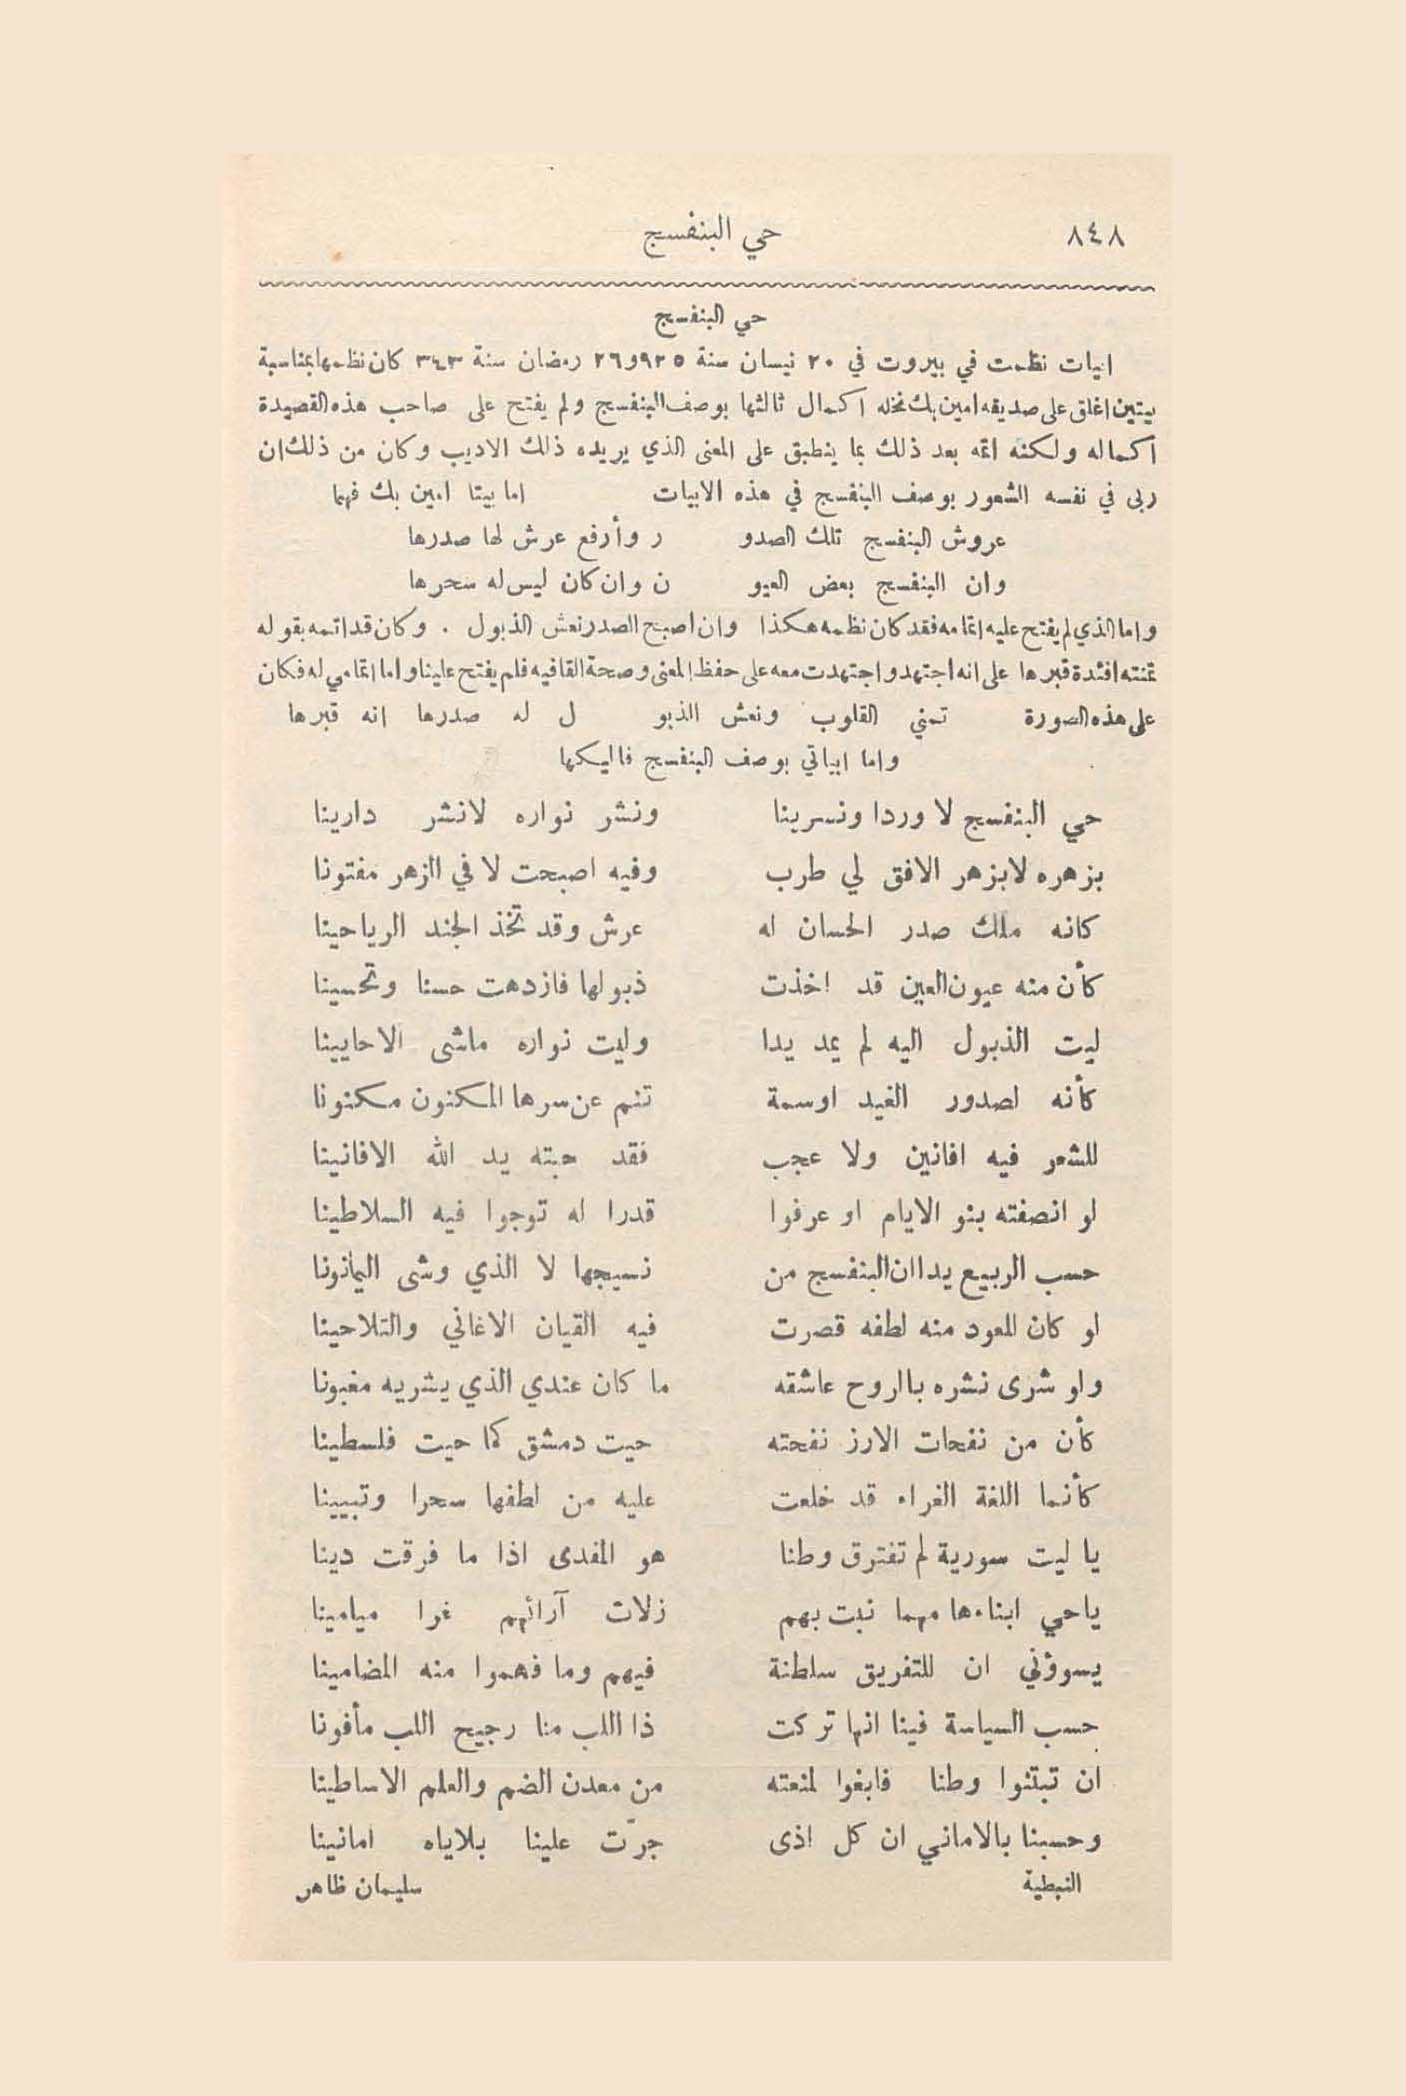 ٨٤٨ حي البنفسج
حي البنفسج
ابيات نظمت في بيروت في ٢٠ نيسان سنة ٩٢٥ و٢٦ رمضان سنة ٣٤٣ كان نظمها بمناسبة
بيتين اغلق على صديقه امين بك نخله اكمال ثالثها بوصف البنفسج ولم يفتح على صاحب هذه القصيدة
اكماله ولكنه اتمه بعد ذلك بما ينطبق على المعنى الذي يريده ذلك الاديب وكان من ذلك ان
ربى في نفسه الشعور بوصف البنفسج في هذه الابيات اما بيتا امين بك فهما
عروش البنفسج تلك الصدو ر وأرفع عرش لها صدرها
وان البنفسج بعض العيو ن وان كان ليس له سحرها
واما الذي لم يفتح عليه اتمامه فقد كان نظمه هكذا وان اصبح الصدر نعش الذبول . وكان قد اتمه بقوله
تمنته افئدة قبرها على انه اجتهد واجتهدت معه على حفظ المعنى وصحة القافيه فلم يفتح علينا واما اتمامي له فكان
على هذه الصورة تمني القلوب ونعش الذبو ل له صدرها انه قبرها
واما ابياتي بوصف البنفسج فاليكها
حي البنفسج لا وردا ونسرينا ونشر نواره لانشر دارينا
بزهره لابزهر الافق لي طرب وفيه اصبحت لا في الزهر مفتونا
كانه ملك صدر الحسان له عرش وقد تخذ الجند الرياحينا
كأن منه عيون العين قد اخذت ذبولها فازدهت حسنا وتحسينا
ليت الذبول اليه لم يمد يدا وليت نواره ماشى الاحايينا
كأنه لصدور الغيد اوسمة تنم عن سرها المكنون مكنونا
للشعر فيه افانين ولا عجب فقد حبته يد الله الافانينا
لو انصفته بنو الايام او عرفوا قدرا له توجوا فيه السلاطينا
حسب الربيع يدا ان البنفسج من نسيجها لا الذي وشى اليمانونا
لو كان للعود منه لطفه قصرت فيه القيان الاغاني والتلاحينا
ولو شرى نشره بالروح عاشقه ما كان عندي الذي يشريه مغبونا
كأن من نفحات الارز نفحته حيت دمشق كما حيت فلسطينا
كأنما اللغة الغراء قد خلعت عليه من لطفها سحرا وتبيينا
يا ليت سورية لم تفترق وطنا هو المفدى اذا ما فرقت دينا
ياحي ابناءها مهما نبت بهم زلات آرائهم غرا ميامينا
يسوؤني ان للتفريق سلطنة فيهم وما فهموا منه المضامينا
حسب السياسة فينا انها تركت ذا اللب منا رجيح اللب مأفونا
ان تبتنوا وطنا فابغوا لمنعته من معدن الضم والعلم الاساطينا
وحسبنا بالاماني ان كل اذى جرّت علينا بلاياه امانينا
النبطية سليمان ظاهر